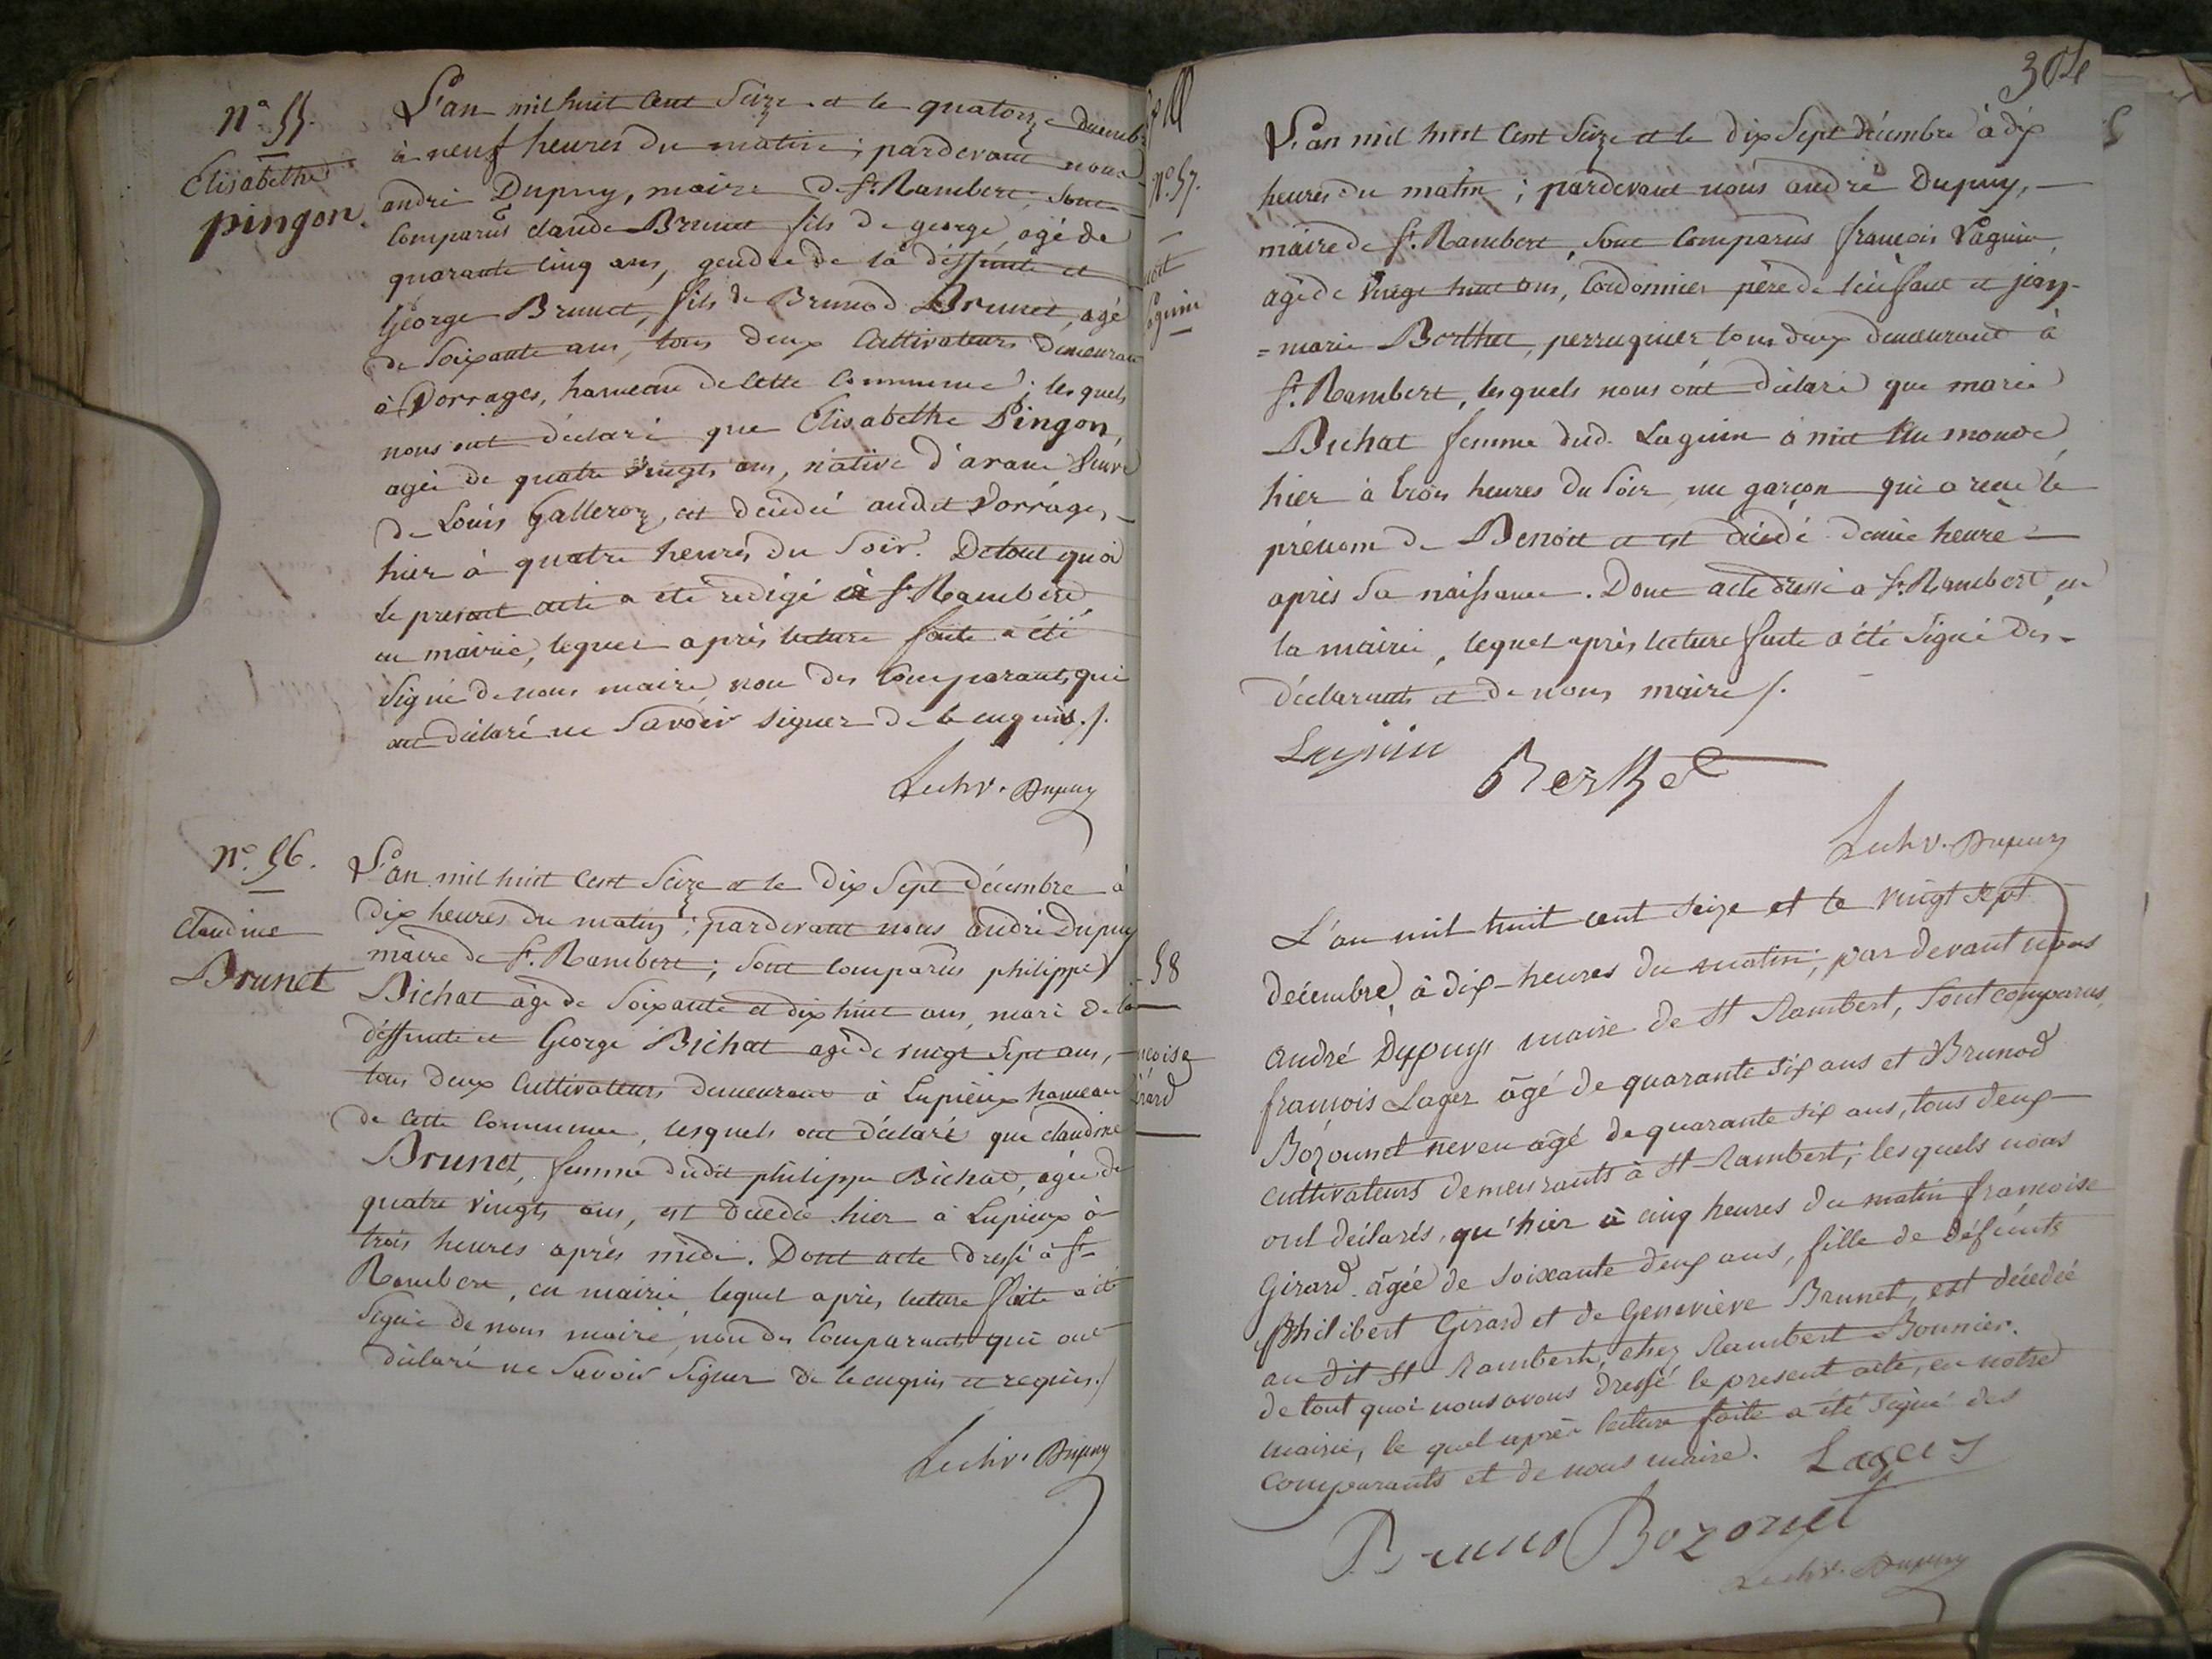 N.° 55.
Elisabethe
pingon.
L'an mil huit cent Seize et le quatorze décemb
à neuf heures du matin ; pardevant nous
andré Dupuy, maire de St. Rambert, sont
Comparus claude Brunet fils de george, agé de
quarante cinq ans, gendre de la deffunte et
George Brunet, fils de Brunod Brunet, agé
de soixante ans, tous deux Cultivateurs demeurant
à Vorrages, hameau de cette Commune ; les quels
nous ont déclaré que Elisabethe Pingon,
agée de quatre vingts ans, native d'arane veuve
de Louis Galleron, est décédée audit Vorrages
hier à quatre heures du Soir. De tout quoi
le present acte a été redigé à St. Rambert
en mairie, lequel après lecture faite a été
Signé de nous maire, non des Comparants, qui
ont déclaré ne Savoir signer de ce enquis ./.
Dupuy
N.° 56.
Claudine
Brunet
L'an mil huit Cent Seize et le dix Sept décembre à
dix heures du matin ; pardevant nous andré Dupuy
maire de St. Rambert ; sont comparus philippe
Bichat agé de soixante et dix huit ans, mari de la
deffunte et George Bichat agé de vingt sept ans,
tous deux Cultivateurs demeurant à Lupieux hameau
de cette Commune, lesquels ont déclaré que claudine
Brunet, femme dudit philippe Bichat, agée de
quatre vingts ans, est décédée hier à Lupieux à
trois heures après midi. Dont acte dressé à St
Rambert, en mairie, lequel après lecture faite a été
Signé de nous maire, non des Comparants qui ont
déclaré ne Savoir Signer de ce enquis et requis./
Dupuy
304
N.° 57.
noit
aguin
L'an mil huit Cent Seize et le dix Sept décembre à dix
heures du matin ; pardevant nous andré Dupuy,
maire de St. Rambert, sont Comparus françois Laguin,
agé de vingt huit ans, Cordonnier père de l'enffant et jean-
=marie Berthet, perruquier tous deux demeurant à
St. Rambert, les quels nous ont déclaré que marie
Bichat femme dud. Laguin a mit au monde
hier à trois heures du Soir un garçon qui a reçu le
prénom de Benoit et est décédé demie heure
après Sa naissance. Dont acte dressé à St. Rambert en
la mairie, lequel après lecture faite a été Signé des
déclarants et de nous maire /.
Laguin
Berthet
Dupuy
58
ncoise
irard
L'an mil huit cent seize et le vingt sept
décembre, à dix-heures du matin, par devant nous
andré Dupuy maire de St Rambert, sont comparus,
françois Lager âgé de quarante six ans et Brunod
Bozonnet neveu agé de quarante six ans, tous deux
cultivateurs demeurants à St-Rambert, les quels nous
ont déclarés, qu'hier à cinq heures du matin francoise
Girard âgée de soixante deux ans, fille de défunts
philibert Girard et de Genevieve Brunet, est décedée
au dit St Rambert, chez Rambert Bonnier.
de tout quoi nous avons dressé le present acte, en notre
mairie, le quel après lecture faite a été signé des
Comparants et de nous maire.
Lager
Bruno Bozonet
Dupuy